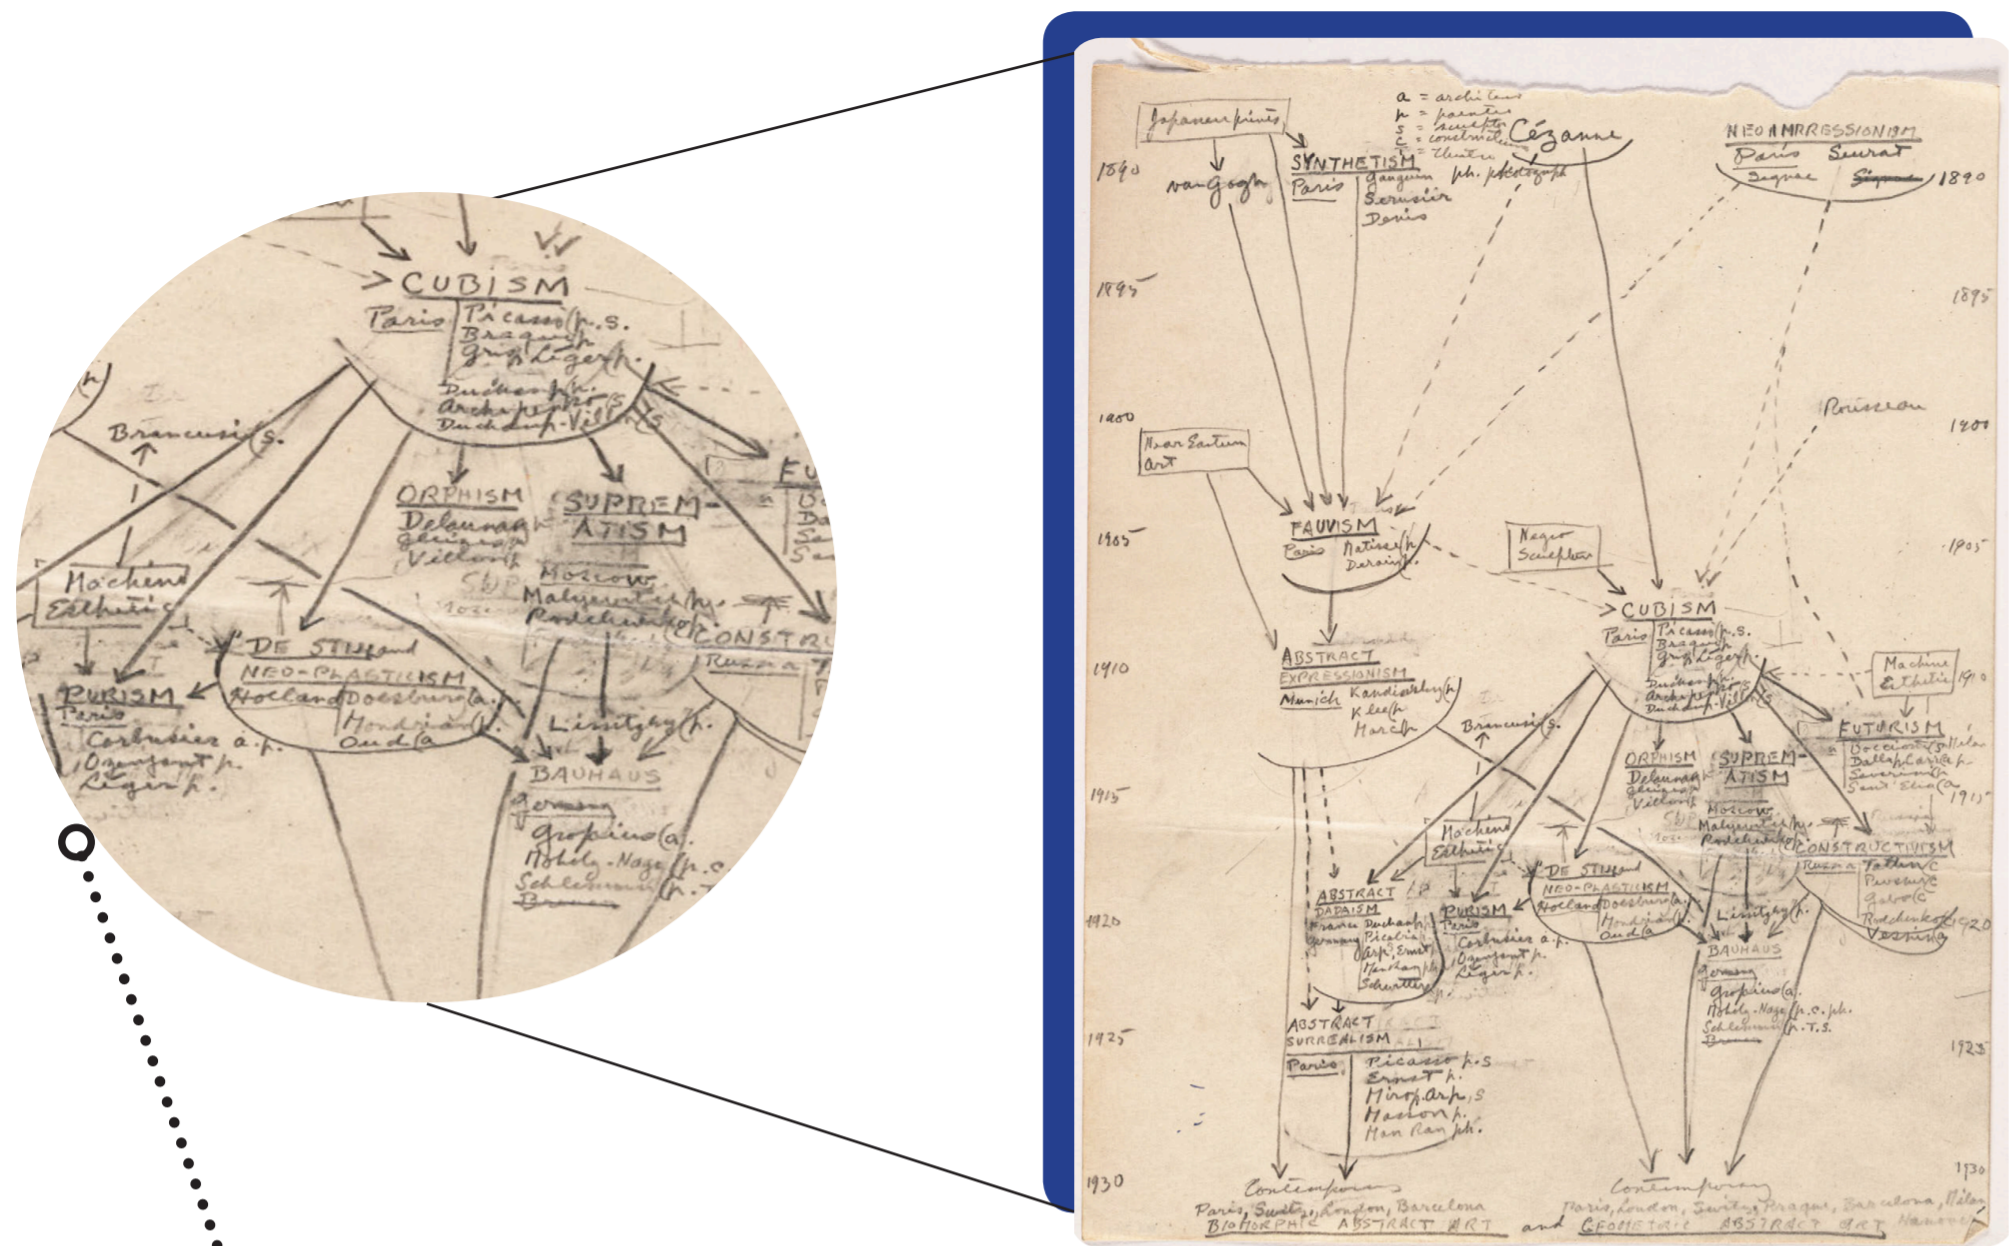 CUBISM
Paris Picasso (p.s.
Braque p
Gris, Léger p.
Duchamp p.
Archipenko (s
Duchamp-Villon (s
Brancusi (s.
ORPHISM
Delaunay
Gleizes
Villon p
SUPREM-
ATISM
Moscow
Malyevitch p.
Rodchenko p.
Machine
Esthetic
PURISM
Paris
Corbusier a.p.
Ozenfant p.
Léger p.
DE STIJL and
NEO-PLASTICISM
Holland Doesburg (a.
Mondrian (p.
Oud (a
CONSTR
Russia
Lissitzky (p.
BAUHAUS
Germany
Gropius (a.
Moholy-Nagy (p.c
Schlemmer (p.T
Breuer
Japanese prints
a = architects
p = painters
s = sculptors
c = constructions
t = theatre
ph. photograph
Cézanne
NEO IMPRESSIONISM
Paris Seurat
Signac Signac
1890
1890
van Gogh
SYNTHETISM
Paris Gauguin
Serusier
Denis
1895
1895
1900
Rousseau
1900
Near Eastern
Art
1905
FAUVISM
Paris Matisse (p
Derain p.
Negro
Sculpture
1905
CUBISM
Paris Picasso (p.s.
Braque p
Gris, Léger p.
Duchamp p.
Archipenko (s
Duchamp-Villon (s
1910
ABSTRACT
EXPRESSIONISM
Munich Kandinsky (p
Klee p
Marc p
Machine
Esthetic
1910
Brancusi (s.
FUTURISM
Boccioni (s Milan
Balla p. Carrà p.
Severini p
Sant'Elia (a
ORPHISM
Delaunay
Gleizes
Villon p
SUPREM-
ATISM
Moscow
Malyevitch p.
Rodchenko p.
1915
1915
Machine
Esthetic
CONSTRUCTIVISM
Russia Tatlin (c
Pevsner c
Gabo (c
Rodchenko
Vesnin a
DE STIJL and
NEO-PLASTICISM
Holland Doesburg (a.
Mondrian (p.
Oud (a
ABSTRACT
DADAISM
France Duchamp p
Germany Picabia
Arp, Ernst
Man Ray ph
Schwitters p.
PURISM
Paris
Corbusier a.p.
Ozenfant p.
Léger p.
1920
1920
Lissitzky (p.
BAUHAUS
Germany
Gropius (a.
Moholy-Nagy (p.c.ph.
Schlemmer (p.T.S.
Breuer
1925
1925
ABSTRACT
SURREALISM
Paris Picasso p.s
Ernst p.
Miro p. Arp p,s
Masson p.
Man Ray ph.
1930
1930
Contemporary
Paris, Switz., London, Barcelona
BIOMORPHIC ABSTRACT ART
and
Contemporary
Paris, London, Switz, Prague, Barcelona, Milan,
Hanover
GEOMETRIC ABSTRACT ART